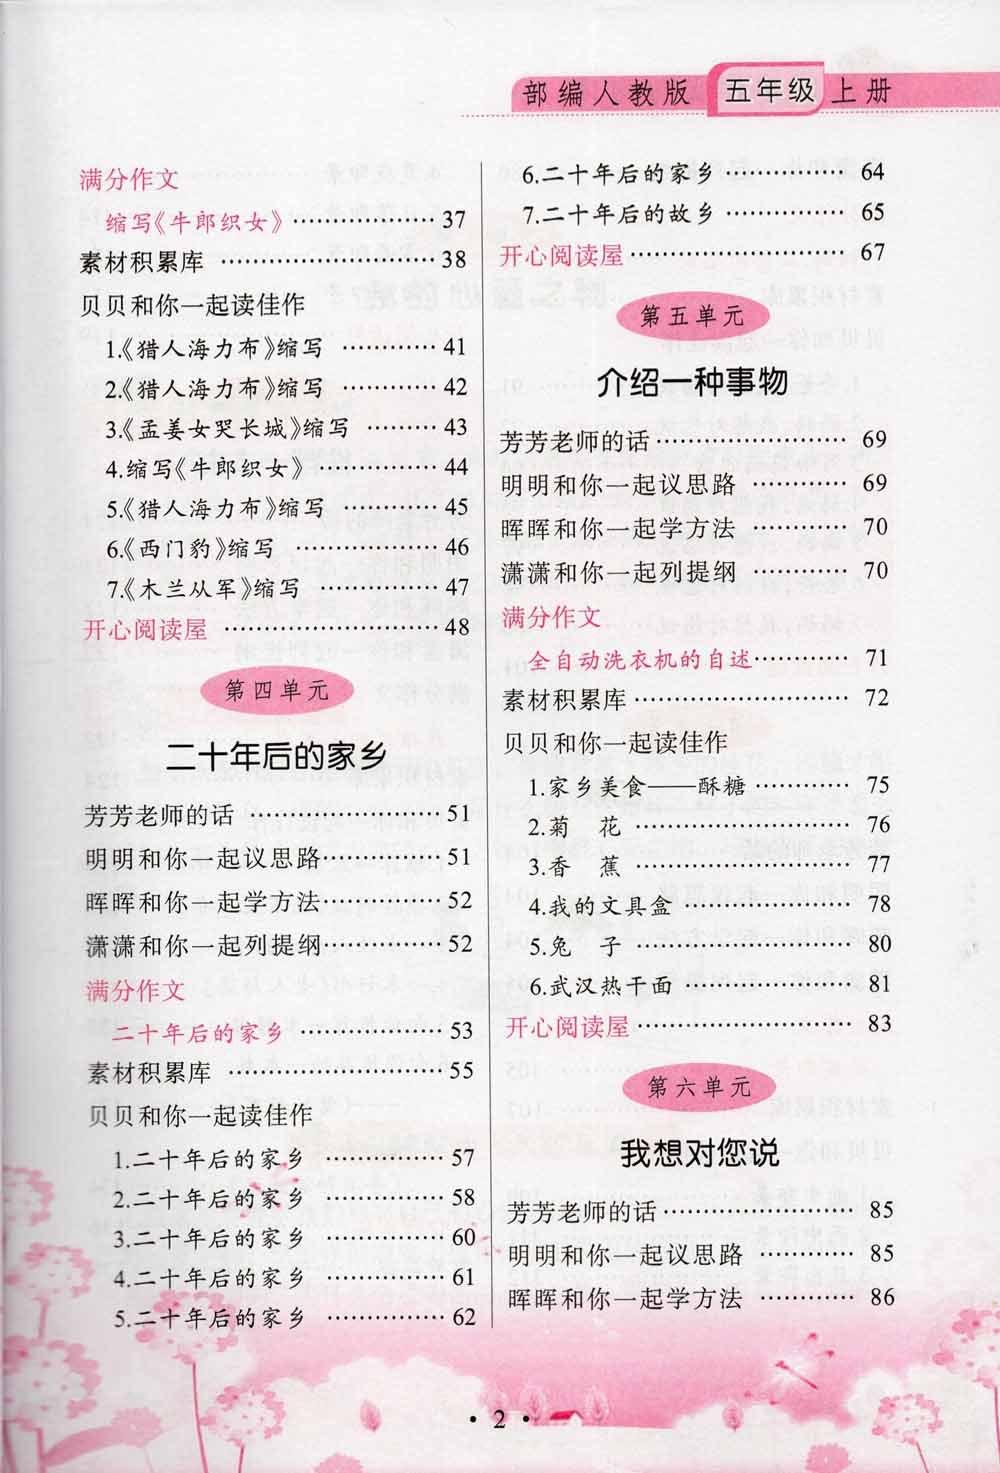 部编人教版 五年级 上册
满分作文
缩写《牛郎织女》 ………………… 37
素材积累库 ………………… 38
贝贝和你一起读佳作
1.《猎人海力布》缩写 ………… 41
2.《猎人海力布》缩写 ………… 42
3.《孟姜女哭长城》缩写 ……… 43
4.缩写《牛郎织女》 ………… 44
5.《猎人海力布》缩写 ………… 45
6.《西门豹》缩写 …………… 46
7.《木兰从军》缩写 ………… 47
开心阅读屋 ………………… 48
第四单元
二十年后的家乡
芳芳老师的话 ……………… 51
明明和你一起议思路 ………… 51
晖晖和你一起学方法 ………… 52
潇潇和你一起列提纲 ………… 52
满分作文
二十年后的家乡 …………… 53
素材积累库 ………………… 55
贝贝和你一起读佳作
1.二十年后的家乡 ………… 57
2.二十年后的家乡 ………… 58
3.二十年后的家乡 ………… 60
4.二十年后的家乡 ………… 61
5.二十年后的家乡 ………… 62
6.二十年后的家乡 ………… 64
7.二十年后的故乡 ………… 65
开心阅读屋 ………………… 67
第五单元
介绍一种事物
芳芳老师的话 ……………… 69
明明和你一起议思路 ……… 69
晖晖和你一起学方法 ……… 70
潇潇和你一起列提纲 ……… 70
满分作文
全自动洗衣机的自述 ……… 71
素材积累库 ………………… 72
贝贝和你一起读佳作
1.家乡美食——酥糖 ……… 75
2.菊 花 ………………… 76
3.香 蕉 ………………… 77
4.我的文具盒 …………… 78
5.兔 子 ………………… 80
6.武汉热干面 …………… 81
开心阅读屋 ………………… 83
第六单元
我想对您说
芳芳老师的话 ……………… 85
明明和你一起议思路 ……… 85
晖晖和你一起学方法 ……… 86
· 2 ·